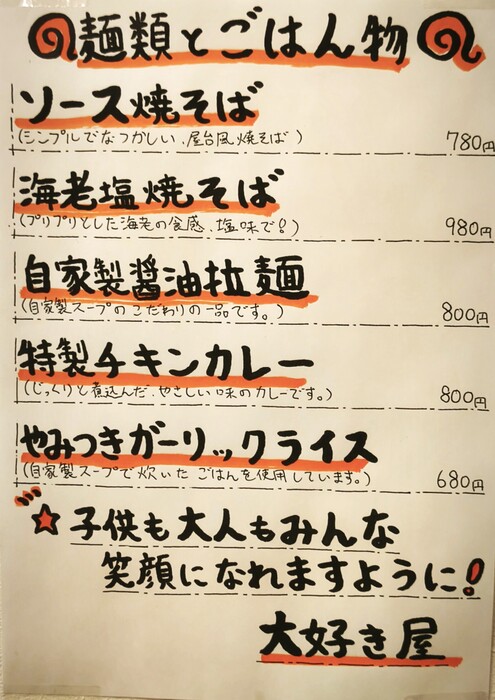 麺類とごはん物
ソース焼そば
(シンプルでなつかしい、屋台風焼そば)
780円
海老塩焼そば
(プリプリとした海老の食感、塩味で!)
980円
自家製醤油拉麺
(自家製スープのこだわりの一品です。)
800円
特製チキンカレー
(じっくりと煮込んだ、やさしい味のカレーです。)
800円
やみつきガーリックライス
(自家製スープで炊いたごはんを使用しています。)
680円
☆子供も大人もみんな
笑顔になれますように!
大好き屋